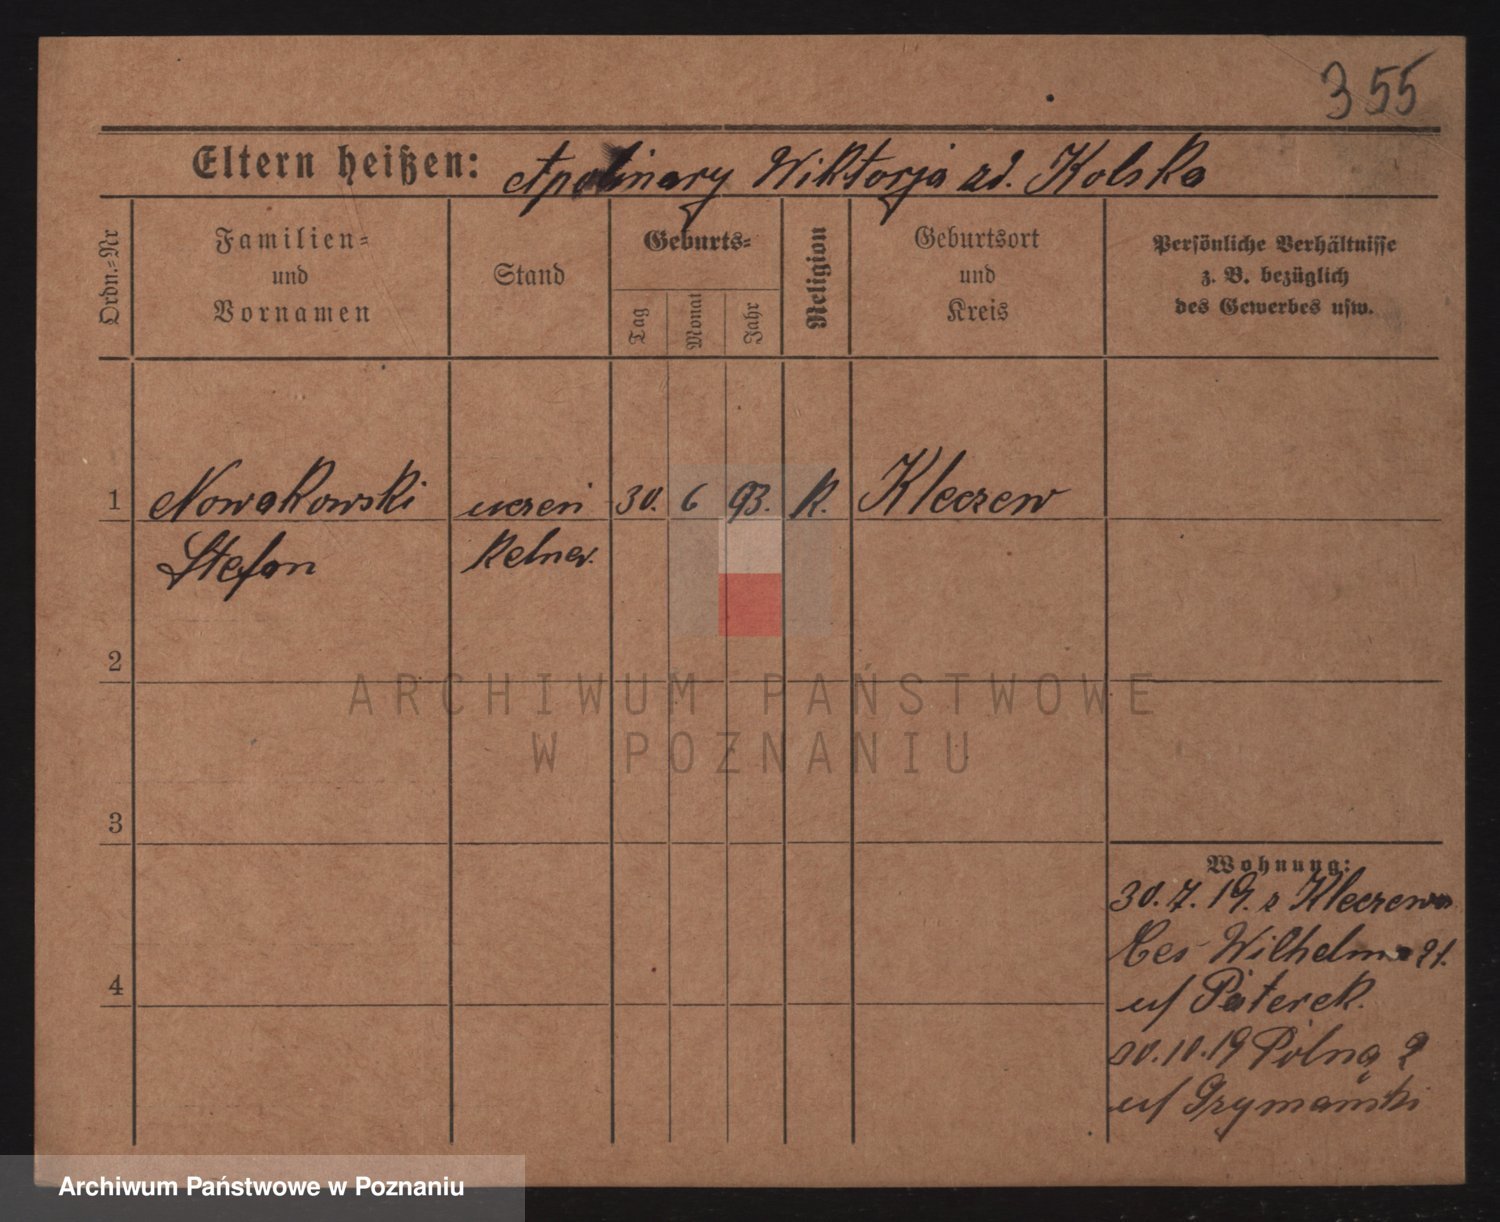 355
Eltern heißen: Apolinary Wiktorja zd. Kolska
Ordn.=Nr
Familien=
und
Vornamen
Stand
Geburts=
Tag
Monat
Jahr
Religion
Geburtsort
und
Kreis
Persönliche Verhältnisse
z. B. bezüglich
des Gewerbes usw.
1 Nowakowski uczeń 30. 6 93. k. Kleczew
Stefan kelner.
2
ARCHIWUM PAŃSTWOWE
W POZNANIU
3
Wohnung:
30.7.19. z Kleczewa
Ces Wilhelma 21.
u/ Paterek.
4
10.19 Polna 2
u/ Szymański
Archiwum Państwowe w Poznaniu